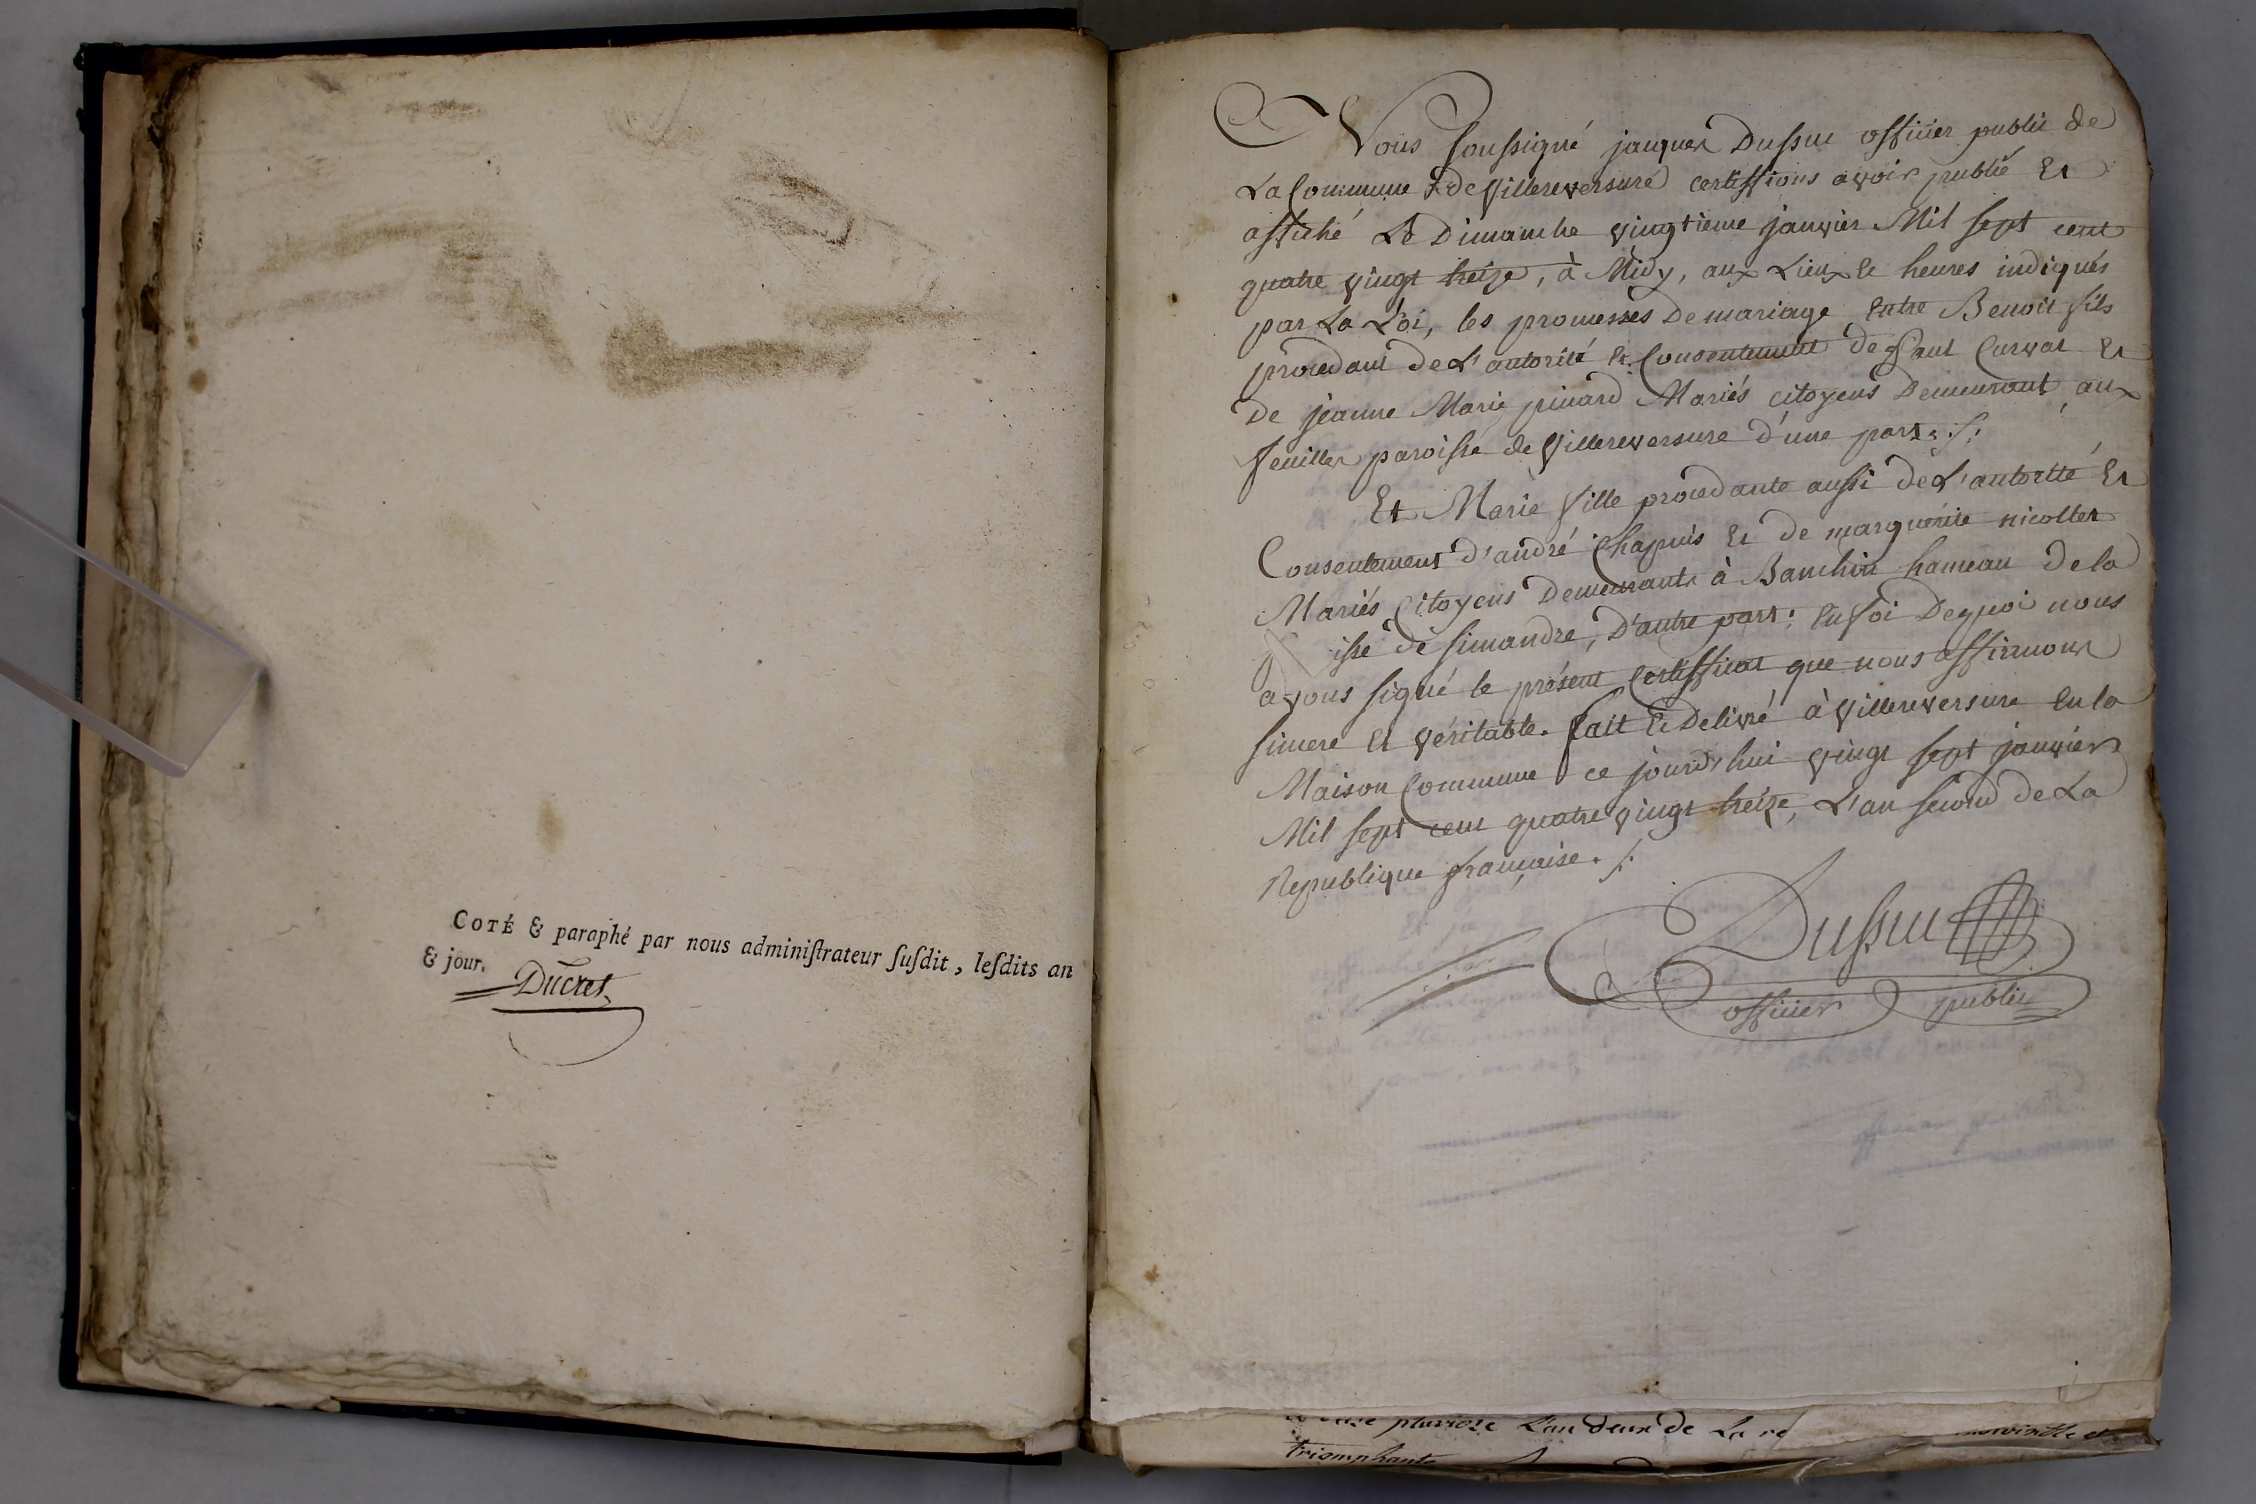 COTÉ & paraphé par nous adminiſtrateur ſuſdit, leſdits an
& jour.
Ducret
Nous soussigné jaques Dussuc officier public de
La Commune de Villereversure certiffions avoir publié Et
affiché Le Dimanche vingtieme janvier Mil sept cent
quatre vingt treize, à Midy, aux Lieux Et heures indiqués
par La Loi, les promesses De mariage Entre Benoit fils
procedant de L'autorité Et Consentement de Paul Curvat Et
De jeanne Marie pinard Mariés citoyens Demeurant aux
feuilles paroisse de Villereversure d'une part ./.
Et Marie fille procedante aussi de L'autorité Et
Consentement d'andré Chapuis Et de marguerite nicollet
Mariés Citoyens Demeurants à Banchin hameau de la
isse de simandre, D'autre part; En foi Dequoi nous
avons signé le présent Certifficat que nous affirmons
sincere Et véritable. fait Et Délivré à Villereversure En la
Maison Commune ce jourd'hui vingt sept janvier
Mil sept cent quatre vingt treize, L'an second de La
Republique française. /.
Dussuc
officier public
pluviose L'an deux de La re
triomphante